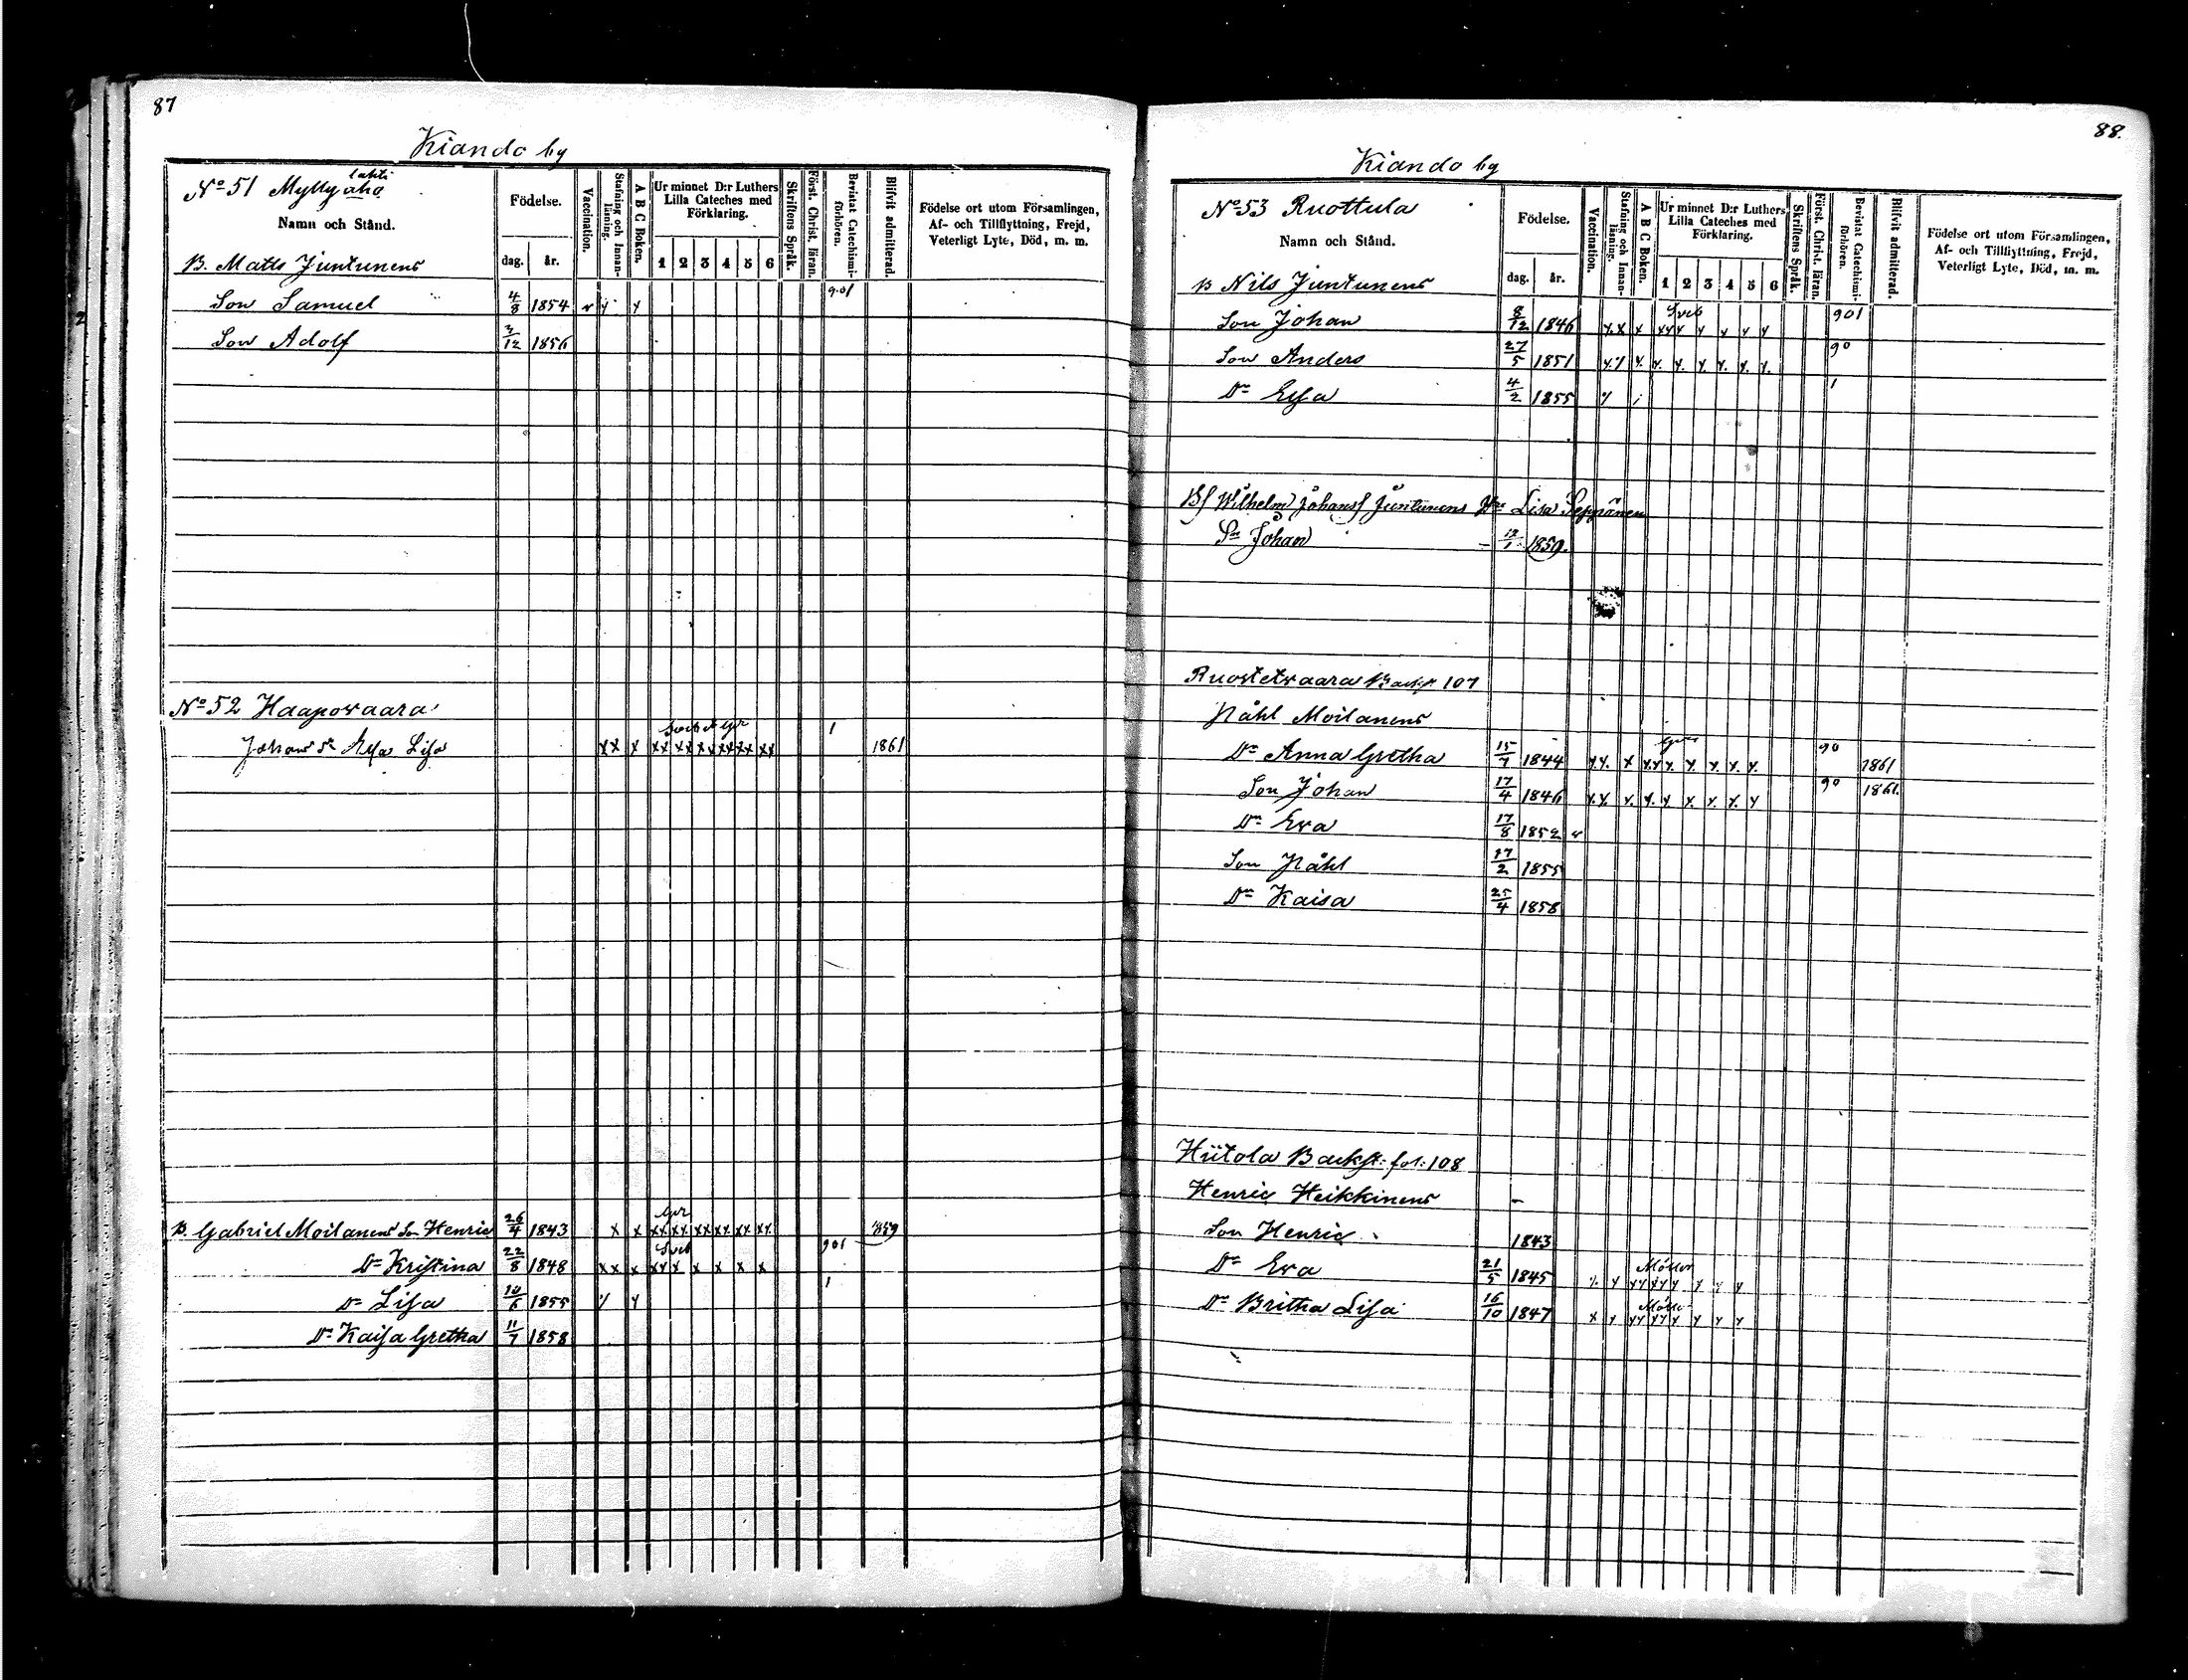 87
Kiando by
No 51 Myllyaho lahti
Namn och Stånd.
Födelse.
dag. år.
Vaccination.
Stafning och Innan-läsning.
A B C Boken.
Ur minnet D:r Luthers Lilla Cateches med Förklaring.
1 2 3 4 5 6
Skriftens Språk.
Först. Christ. läran.
Bevistat Catechismi-förhören.
Blifvit admitterad.
Födelse ort utom Församlingen, Af- och Tillflyttning, Frejd, Veterligt Lyte, Död, m. m.
B. Matts Juntunens
Son Samuel 4/8 1854 v y y 901
Son Adolf 3/12 1856
No 52 Haapovaara
Johans dr Lisa xx x xx xx xx xx xx xx 1 1861
B. Gabriel Moilanens Son Henric 26/4 1843 x x xx xx xx xx xx xx 1859
Dr Kristina 22/8 1848 Sveb xx x xx x x x x x 901
Dr Lisa 10/6 1855 y y 1
Dr Kaisa Gretha 11/7 1858
88.
Kiando by
No 53 Ruottula
Namn och Stånd.
Födelse.
dag. år.
Vaccination.
Stafning och Innan-läsning.
A B C Boken.
Ur minnet D:r Luthers Lilla Cateches med Förklaring.
1 2 3 4 5 6
Skriftens Språk.
Först. Christ. läran.
Bevistat Catechismi-förhören.
Blifvit admitterad.
Födelse ort utom Församlingen, Af- och Tillflyttning, Frejd, Veterligt Lyte, Död, m. m.
B Nils Juntunens
Son Johan 8/12 1846 Sveb y.x x xy y y y y y 901
Son Anders 27/5 1851 y.y y. y. y. y. y. y. y. 90
Dr Elsa 4/2 1855 y 1
Wilhelm Johans Juntunens Lisa Seppänen
Sn Johan 1859.
Ruostetvaara Backst 107
Påhl Moilanens
Dr Anna Gretha 15/7 1844 y.y. x y.y y. y. y. y. y. 90 1861
Son Johan 17/4 1846 y.y. y. y. y y. y. y. y 90 1861.
Dr Eva 17/8 1852 v
Son Påhl 17/2 1855
Dr Kaisa 25/4 1858
Hiitola Backst: fol: 108
Henric Heikkinens
Son Henric 1843
Dr Eva 21/5 1845 y yy yy y y y y
Dr Britha Lisa 16/10 1847 x y yy yy y y y y